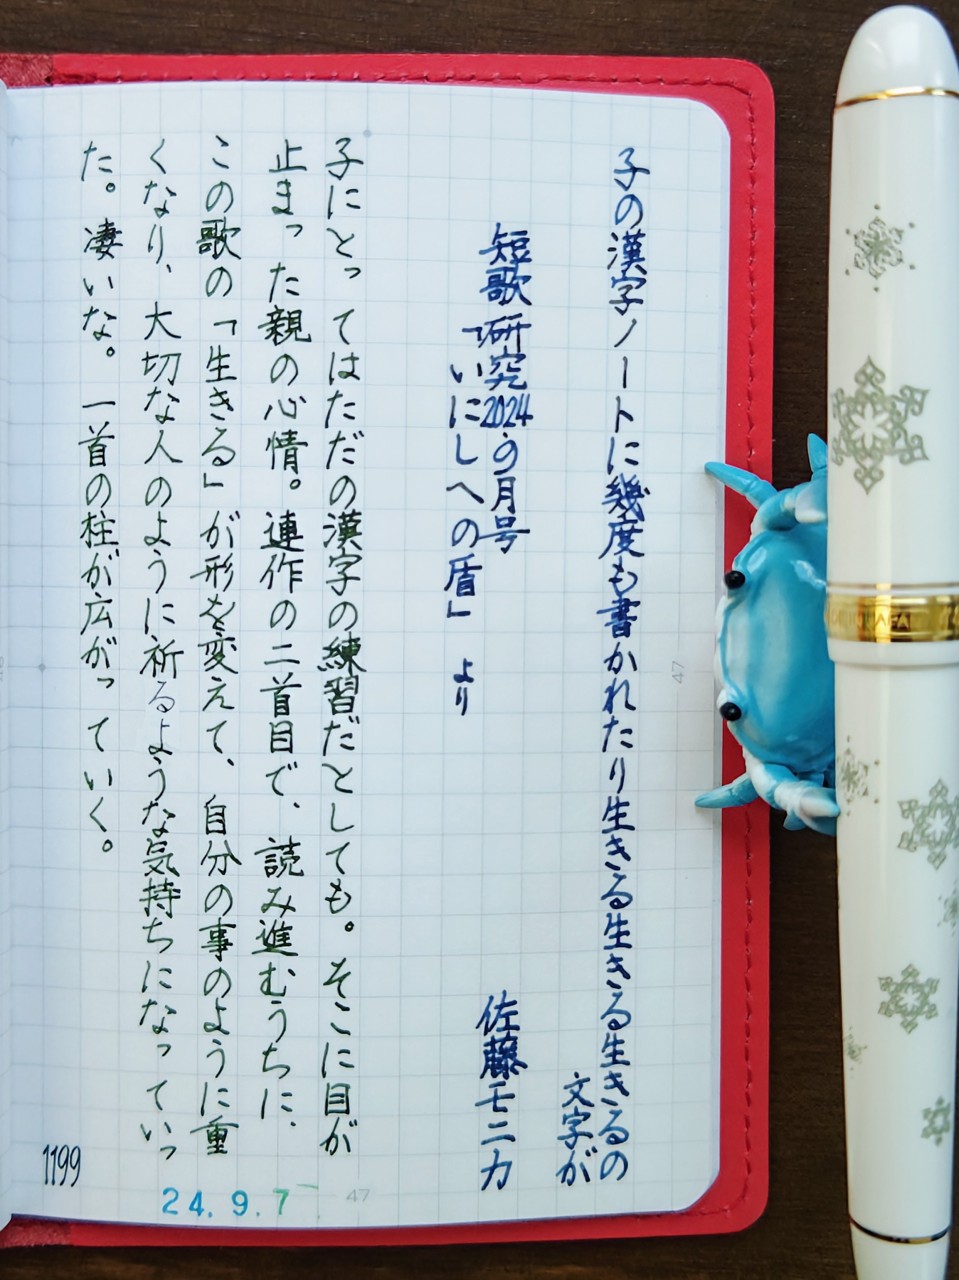 子の漢字ノートに幾度も書かれたり生きる生きる生きるの
文字が
短歌研究2024.9月号
「いにしへの盾」より
佐藤モニカ
子にとってはただの漢字の練習だとしても。そこに目が
止まった親の心情。連作の二首目で、読み進むうちに、
この歌の「生きる」が形を変えて、自分の事のように重
くなり、大切な人のように祈るような気持ちになっていっ
た。凄いな。一首の柱が広がっていく。
1199
24.9.7
47
47